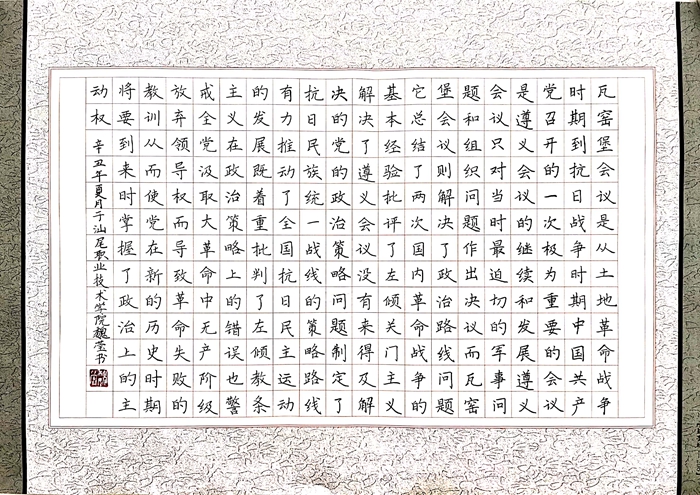 瓦窑堡会议是从土地革命战争
时期到抗日战争时期中国共产
党召开的一次极为重要的会议
是遵义会议的继续和发展遵义
会议只对当时最迫切的军事问
题和组织问题作出决议而瓦窑
堡会议则解决了政治路线问题
它总结了两次国内革命战争的
基本经验批评了左倾关门主义
解决了遵义会议没有来得及解
决的党的政治策略问题制定了
抗日民族统一战线的策略路线
有力推动了全国抗日民主运动
的发展既着重批判了左倾教条
主义在政治策略上的错误也警
戒全党汲取大革命中无产阶级
放弃领导权而导致革命失败的
教训从而使党在新的历史时期
将要到来时掌握了政治上的主
动权
辛丑年夏月于汕尾职业技术学院魏莹书